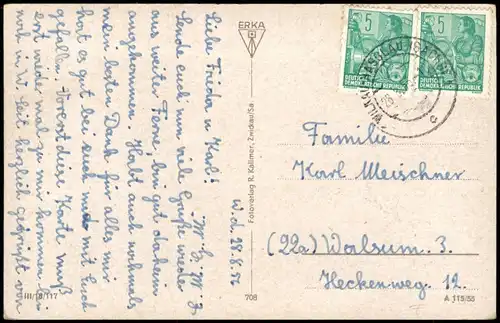 W. d. 28.6.56
Liebe Frieda u. Karl!
Sende euch nun viele Grüße wieder
aus weiter Ferne, bin gut daheim
angekommen. Habt auch nochmals
meinen besten Dank für alles mir
hat es gut bei euch mit Euch
gefallen. Vorerst diese Karte muß
erst wieder mal zu mir kommen bin
noch in W. Seit herzlich gegrüßt von
ERKA
Fotoverlag R. Kallmer, Zwickau/Sa.
III/18/117
708
A 115/55
5
DEUTSCHE
DEMOKRATISCHE REPUBLIK
5
DEUTSCHE
DEMOKRATISCHE REPUBLIK
WILKAU-HASSLAU
c
Familie
Karl Meischner
(22a) Walsum. 3.
Heckenweg. 12.